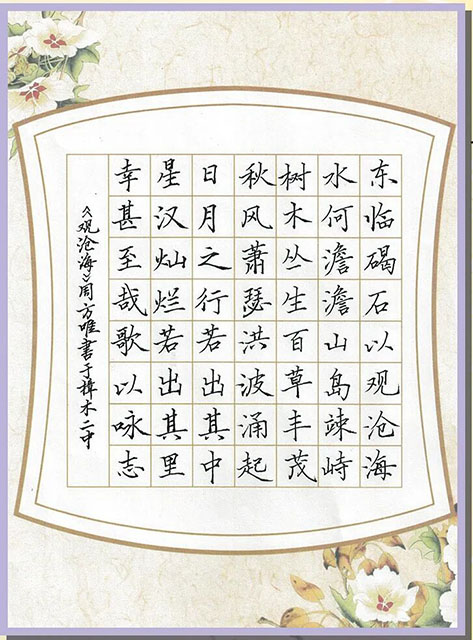 东临碣石以观沧海
水何澹澹山岛竦峙
树木丛生百草丰茂
秋风萧瑟洪波涌起
日月之行若出其中
星汉灿烂若出其里
幸甚至哉歌以咏志
《观沧海》周方唯書于樟木二中